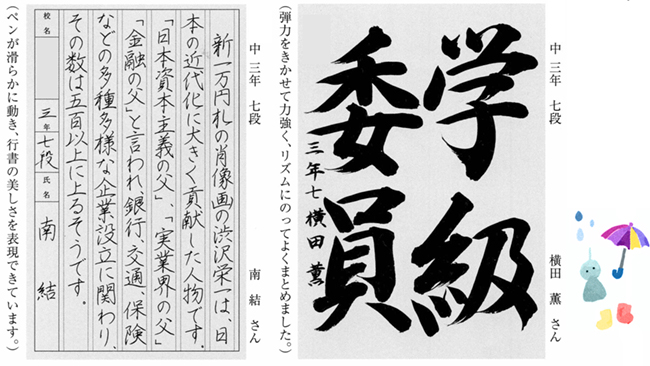 中三年 七段
横田 薫 さん
学級
委員
三年七 横田 薫
(弾力をきかせて力強く、リズムにのってよくまとめました。)
中三年 七段
南 結 さん
新一万円札の肖像画の渋沢栄一は、日
本の近代化に大きく貢献した人物です。
「日本資本主義の父」、「実業界の父」
「金融の父」と言われ、銀行、交通、保険
などの多種多様な企業設立に関わり、
その数は五百以上に上るそうです。
校名
三年 七段 氏名 南 結
(ペンが滑らかに動き、行書の美しさを表現できています。)